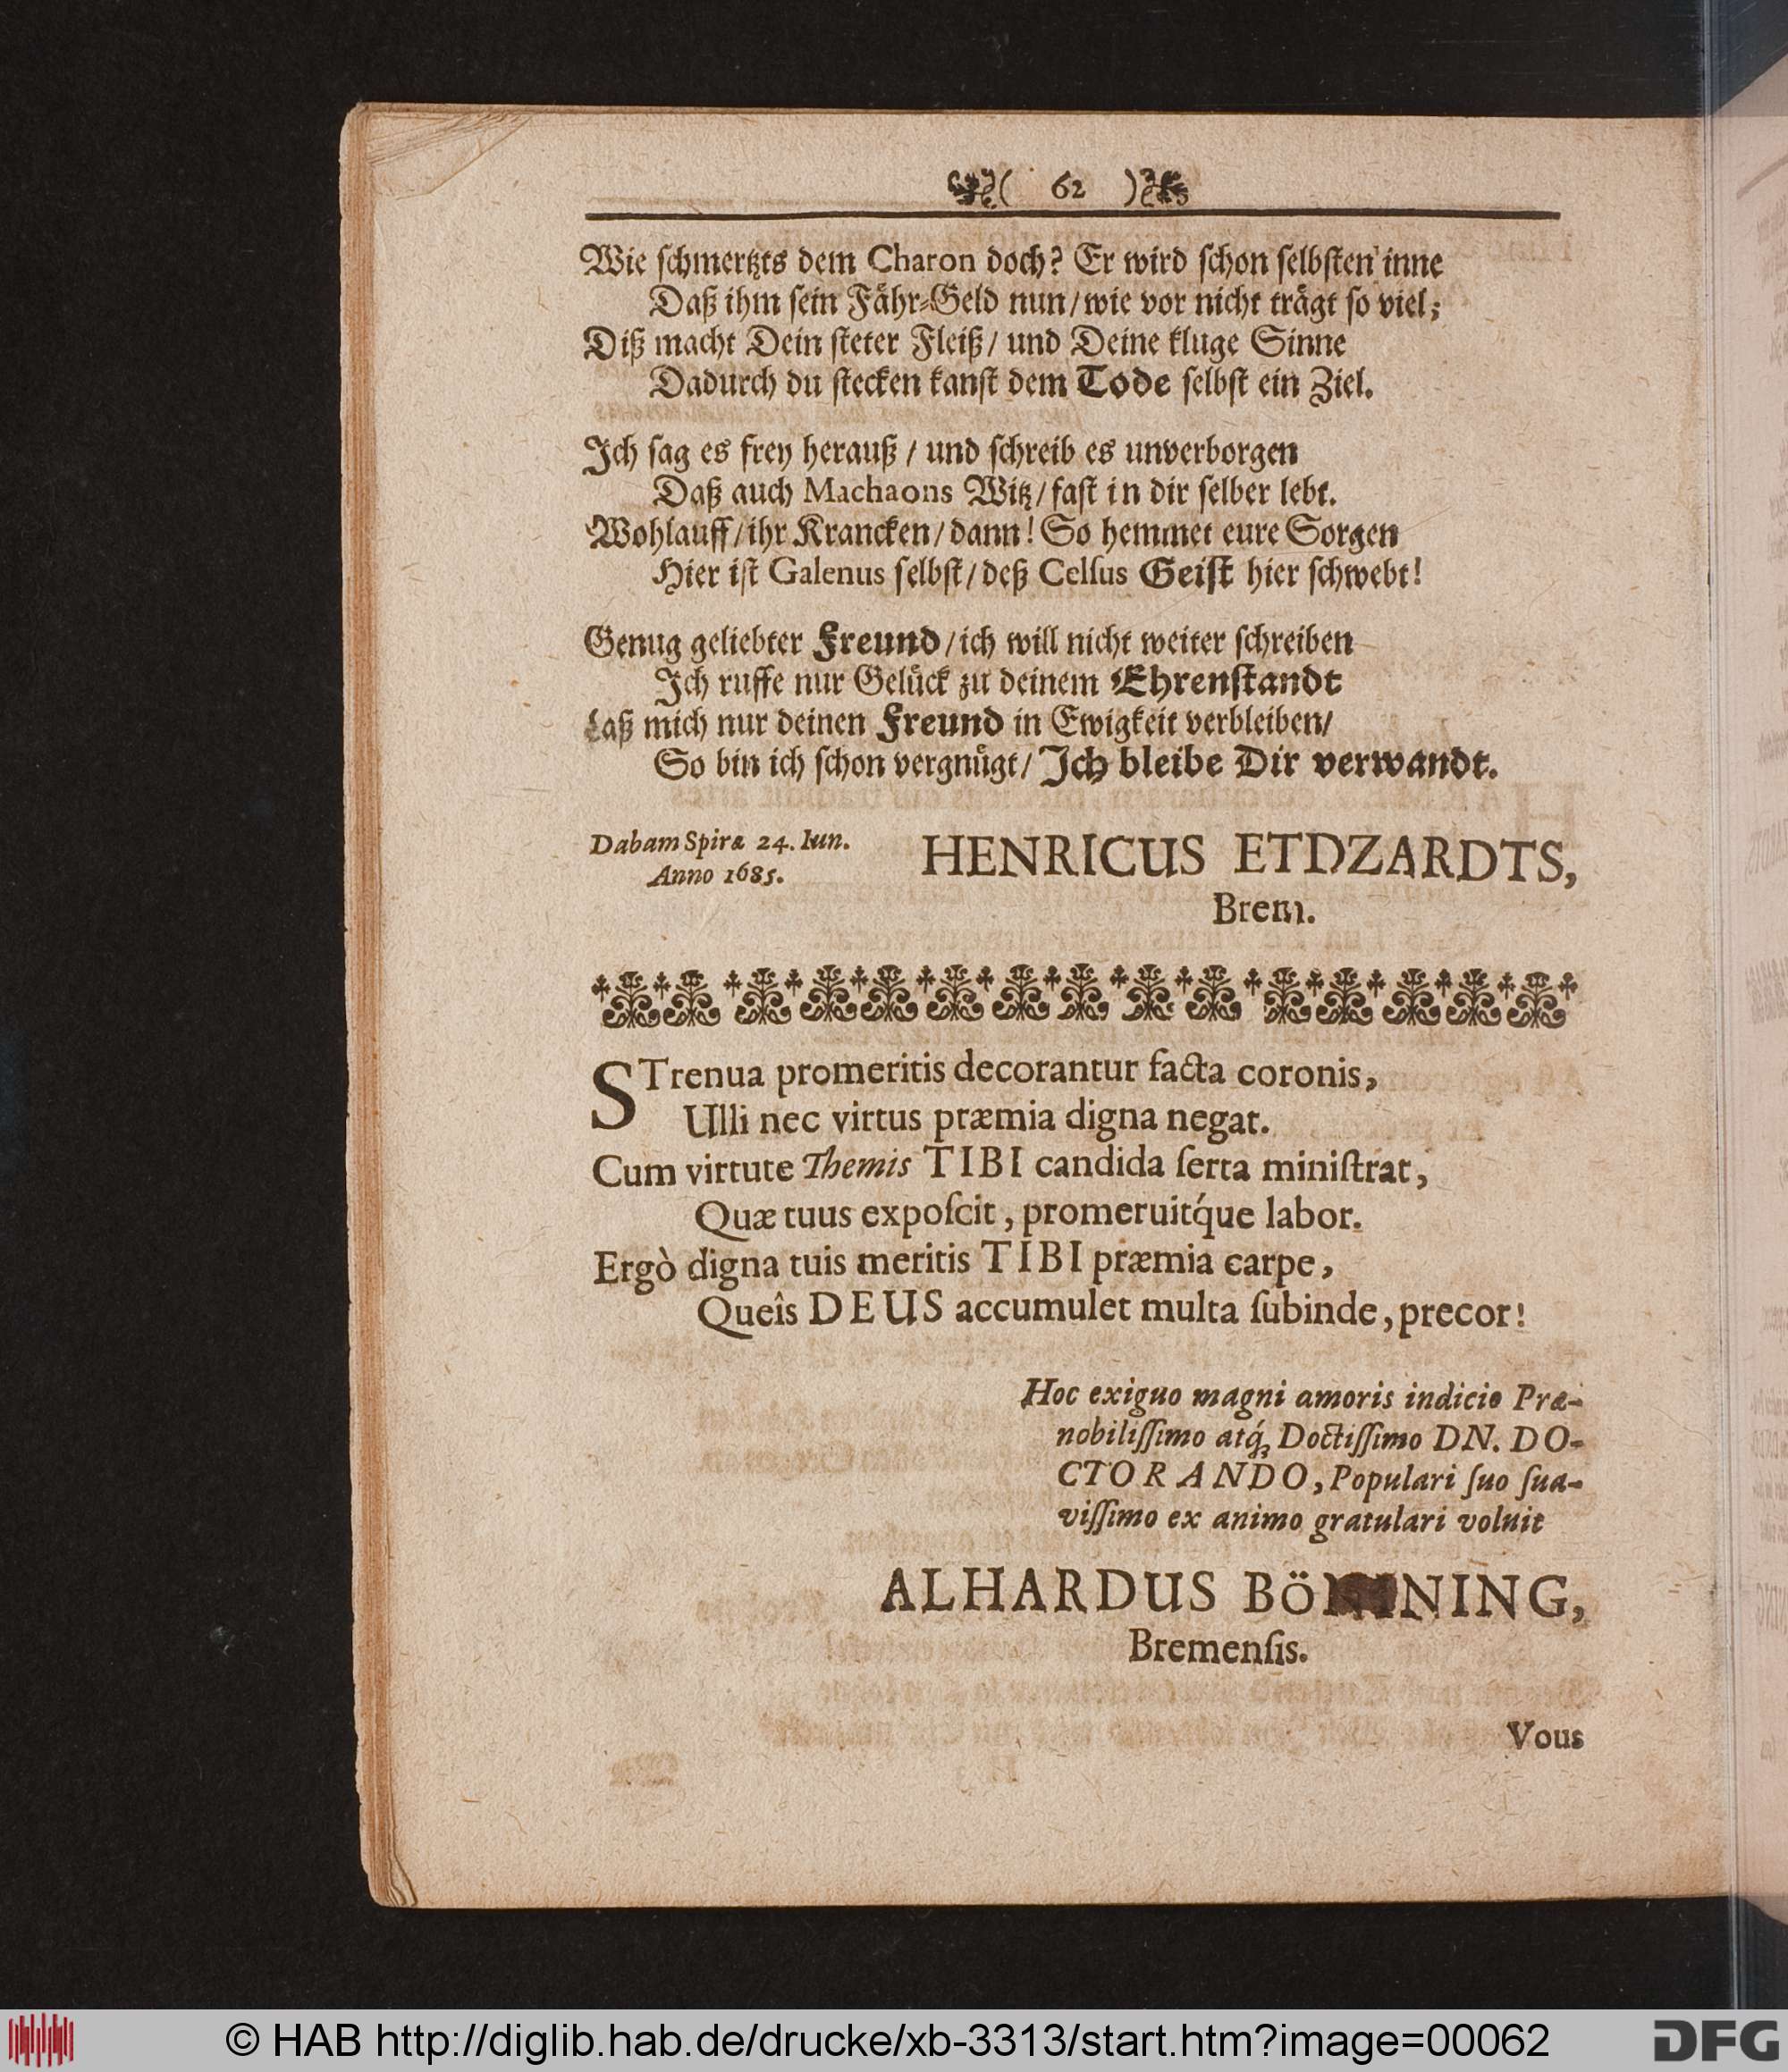 ( 62 )
Wie ſchmertzts dem Charon doch? Er wird ſchon ſelbſten inne
Daß ihm ſein Fåhr-Geld nun/wie vor nicht trågt ſo viel;
Diß macht Dein ſteter Fleiß/ und Deine kluge Sinne
Dadurch du ſtecken kanſt dem Tode ſelbſt ein Ziel.
Ich ſag es frey herauß / und ſchreib es unverborgen
Daß auch Machaons Witz/faſt in dir ſelber lebt.
Wohlauff/ihr Krancken/dann! So hemmet eure Sorgen
Hier iſt Galenus ſelbſt/deß Celſus Geiſt hier ſchwebt!
Genug geliebter Freund/ich will nicht weiter ſchreiben
Ich ruffe nur Gelůck zu deinem Ehrenſtandt
Laß mich nur deinen Freund in Ewigkeit verbleiben/
So bin ich ſchon vergnůgt/ Ich bleibe Dir verwandt.
Dabam Spiræ 24. Iun.
Anno 1685.
HENRICUS ETDZARDTS,
Brem.
STrenua promeritis decorantur facta coronis,
Ulli nec virtus præmia digna negat.
Cum virtute Themis TIBI candida ſerta miniſtrat,
Quæ tuus expoſcit, promeruitq́ue labor.
Ergò digna tuis meritis TIBI præmia carpe,
Queîs DEUS accumulet multa ſubinde, precor!
Hoc exiguo magni amoris indicio Præ-
nobiliſſimo atq́; Doctiſſimo DN. DO-
CTORANDO, Populari ſuo ſua-
viſſimo ex animo gratulari voluit
ALHARDUS
Bremenſis.
Vous
© HAB http://diglib.hab.de/drucke/xb-3313/start.htm?image=00062
DFG